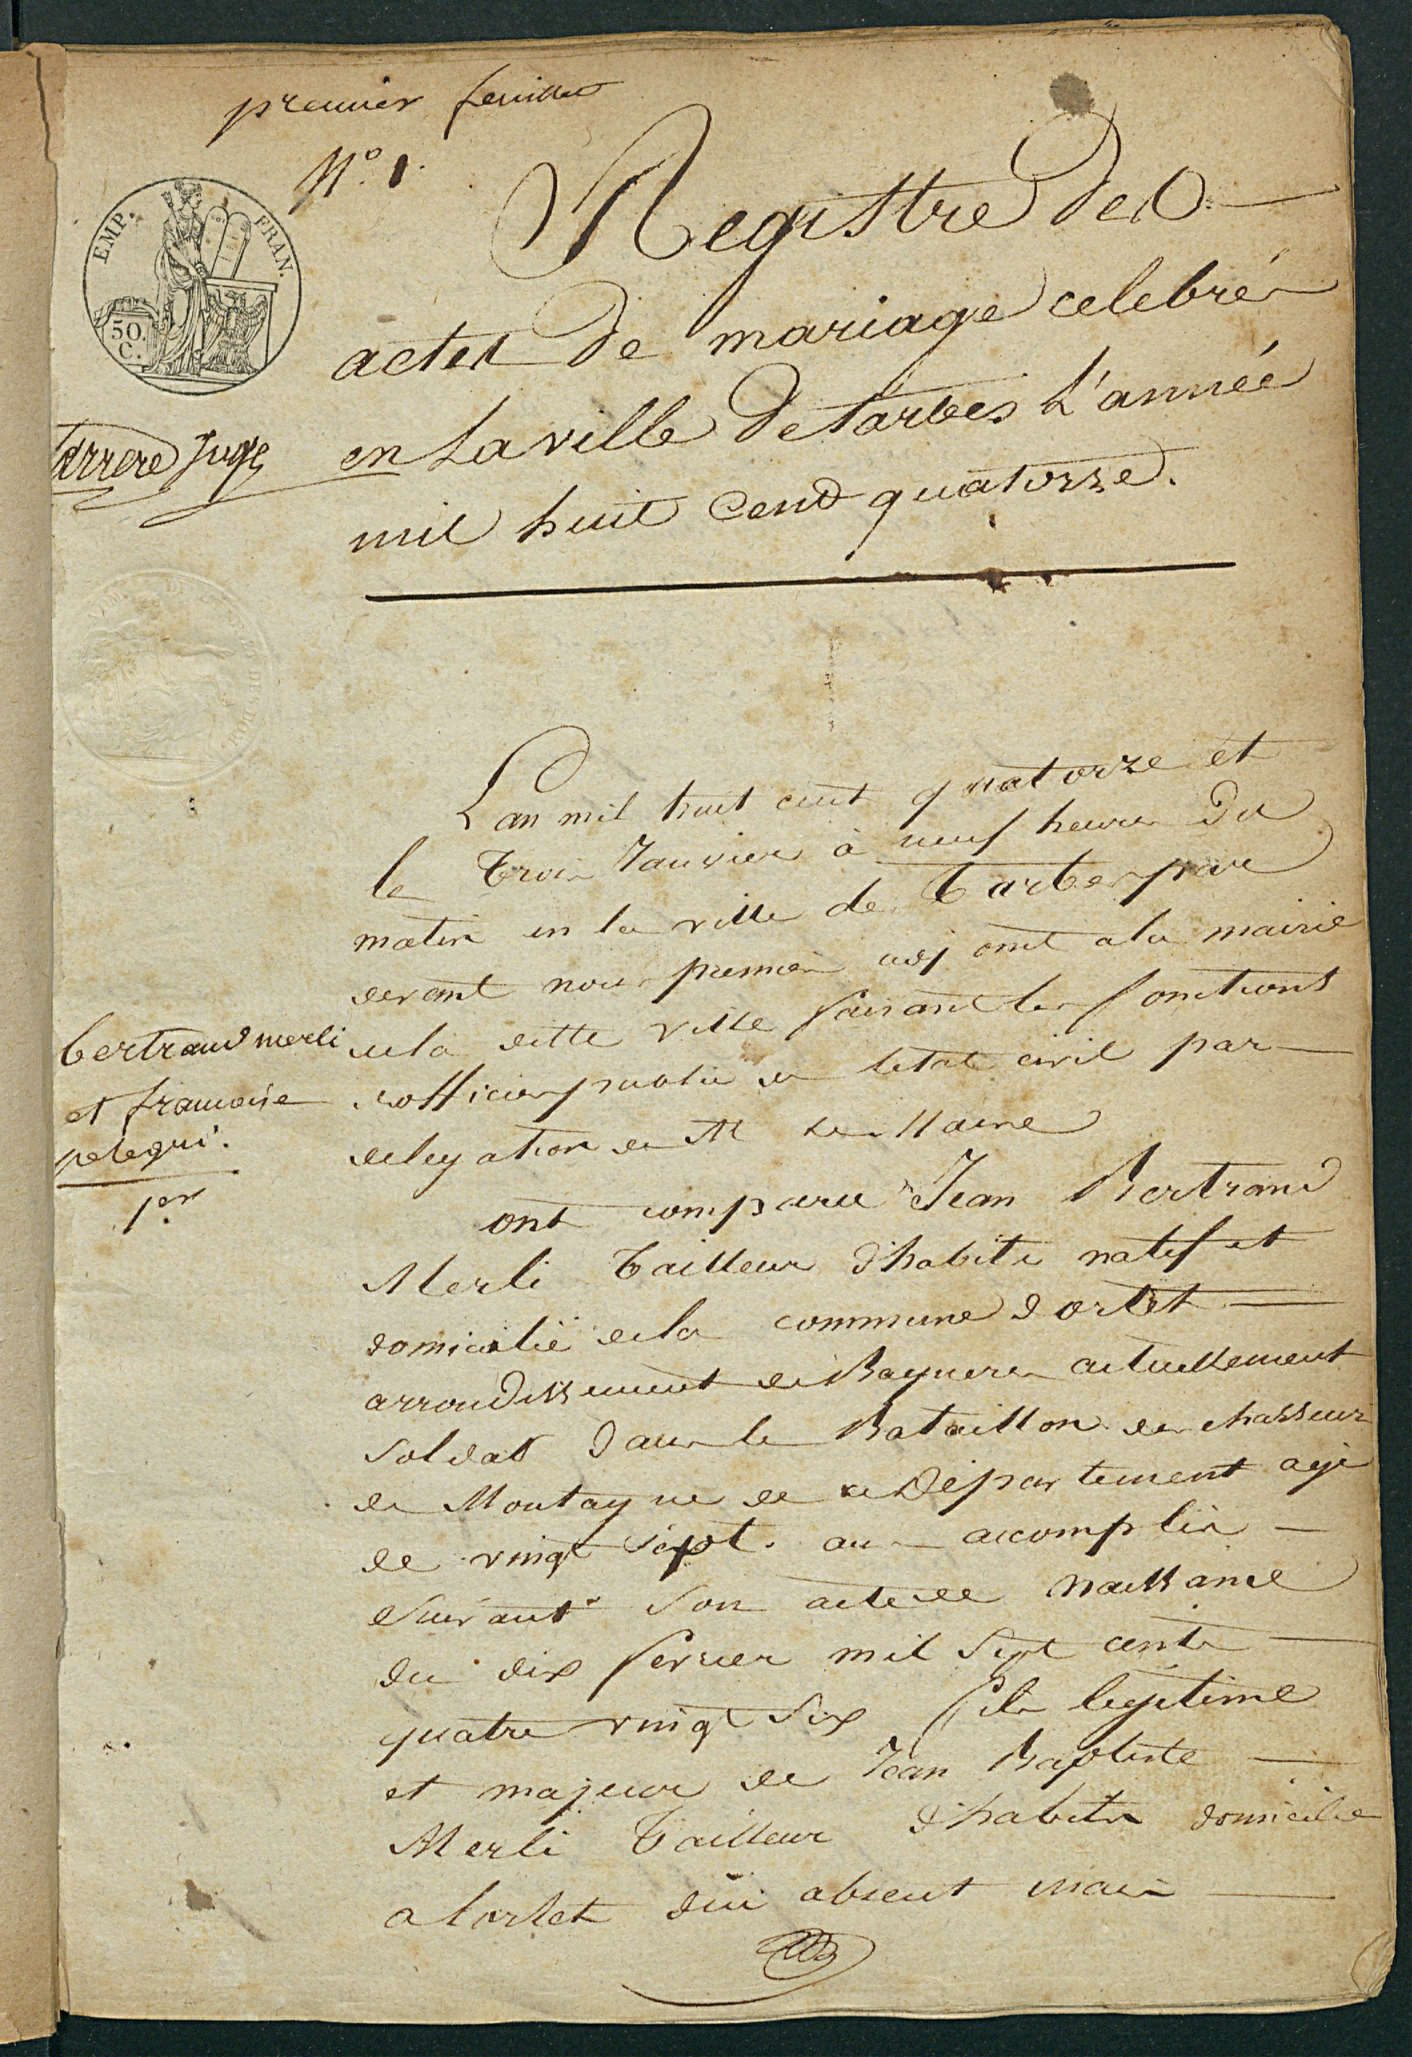 premier feuillet
N.º 1.
EMP. FRAN.
50. C.
Registre des
actes de mariage celebrés
en la ville de tarbes L'année
mil huit cent quatorze.
Juge
L an mil huit cent quatorze et
le trois Janvier à neuf heures du
matin en la ville de Tarbes par
devant nous premier adjoint a la mairie
de la ditte ville faisant les fonctions
dofficier public de letat civil par
delegation de M le Maire
bertrand merli
et francoise
pelegri.
1.er
ont comparu Jean Bertrand
Merli Tailleur d'habits natif et
domicilié de la commune d ortet
arrondissement de Bagneres actuellement
soldat dans le Bataillon des chasseurs
de Montagne de ce Departement agé
de vingt sept ans accomplis
suivant son acte de naissance
du dix fevrier mil sept cents
quatre vingt six fils legitime
et majeur de Jean Baptiste
Merli Tailleur d'habits domicilie
a lortet dici absent mais